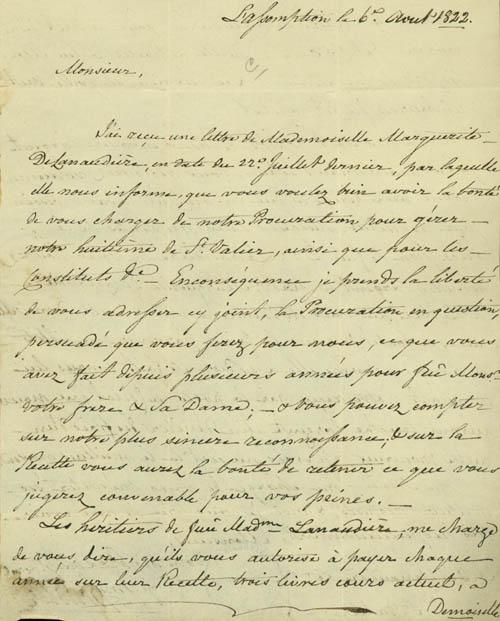 L'assomption le 6e. Août 1822.
Monsieur,
J'ai reçue une lettre de Mademoiselle Marguerite
De Lanaudière, en date du 22e. Juillet dernier, par laquelle
elle nous informe, que vous voulez bien avoir la bonté
de vous charger de notre Procuration pour gérer —
notre huitième de St. Valier, ainsi que pour les —
Constituts &c — Enconséquence je prends la liberté
de vous adresser cy joint, la Procuration en question,
persuadé que vous ferez pour nous, ce que vous
avez fait depuis plusieurs années pour feû Monsr.
votre frère & Sa Dame, — & vous pouvez compter
sur notre plus sincère reconnoissance, & sur la
Recette vous aurez la bonté de retenir ce que vous
jugerez convenable pour vos peines. —
Les héritiers de feuë Madme Lanaudière, me charge
de vous dire, qu'ils vous autorise à payer chaque
année sur leur Recette, trois livres cours actuel, a
Demoiselle